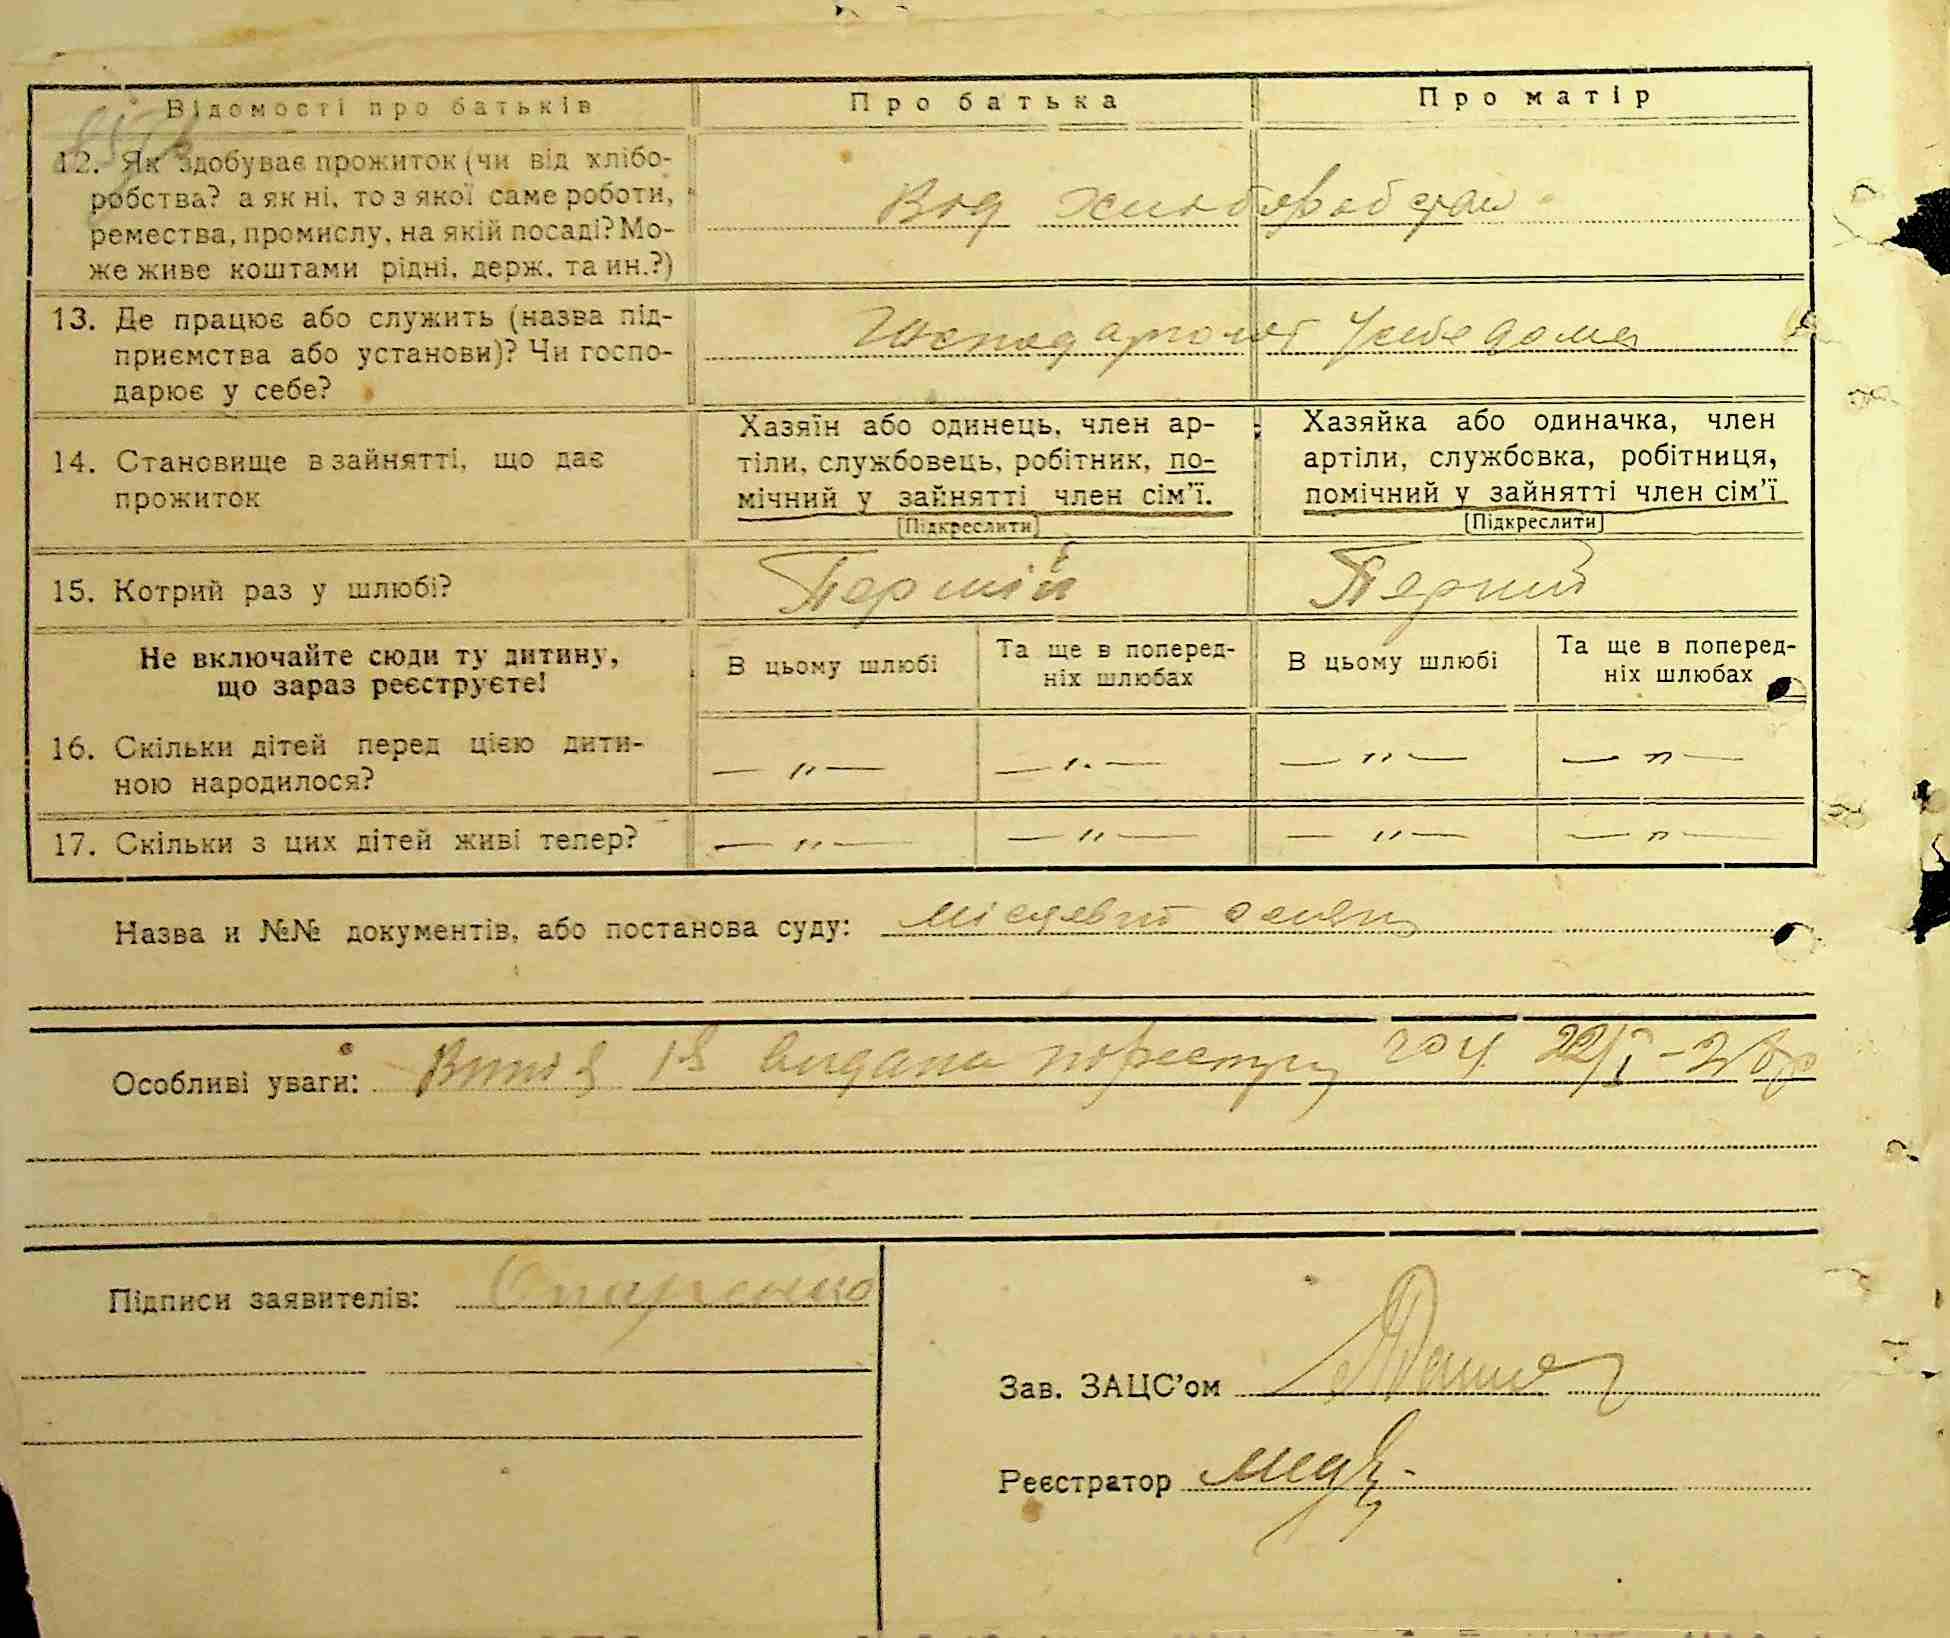 Відомості про батьків
Про батька
Про матір
12. Як здобуває прожиток (чи від хлібо-
робства? а як ні, то з якої саме роботи,
ремества, промислу, на якій посаді? Мо-
же живе коштами рідні, держ. та ин.?)
Вод хлиборобства
13. Де працює або служить (назва під-
приємства або установи)? Чи госпо-
дарює у себе?
у себе дома
14. Становище в зайнятті, що дає
прожиток
Хазяїн або одинець, член ар-
тіли, службовець, робітник, по-
мічний у зайнятті член сім'ї.
[Підкреслити]
Хазяйка або одиначка, член
артіли, службовка, робітниця,
помічний у зайнятті член сім'ї
[Підкреслити]
15. Котрий раз у шлюбі?
Першій
Перший
Не включайте сюди ту дитину,
що зараз реєструєте!
В цьому шлюбі
Та ще в поперед-
ніх шлюбах
В цьому шлюбі
Та ще в поперед-
ніх шлюбах
16. Скільки дітей перед цією дити-
ною народилося?
— " —
— " —
— " —
— " —
17. Скільки з цих дітей живі тепер?
— " —
— " —
— " —
— " —
Назва и №№ документів, або постанова суду:
Особливі уваги: видана 22/I-28р
Підписи заявителів:
Зав. ЗАЦС'ом
Реєстратор